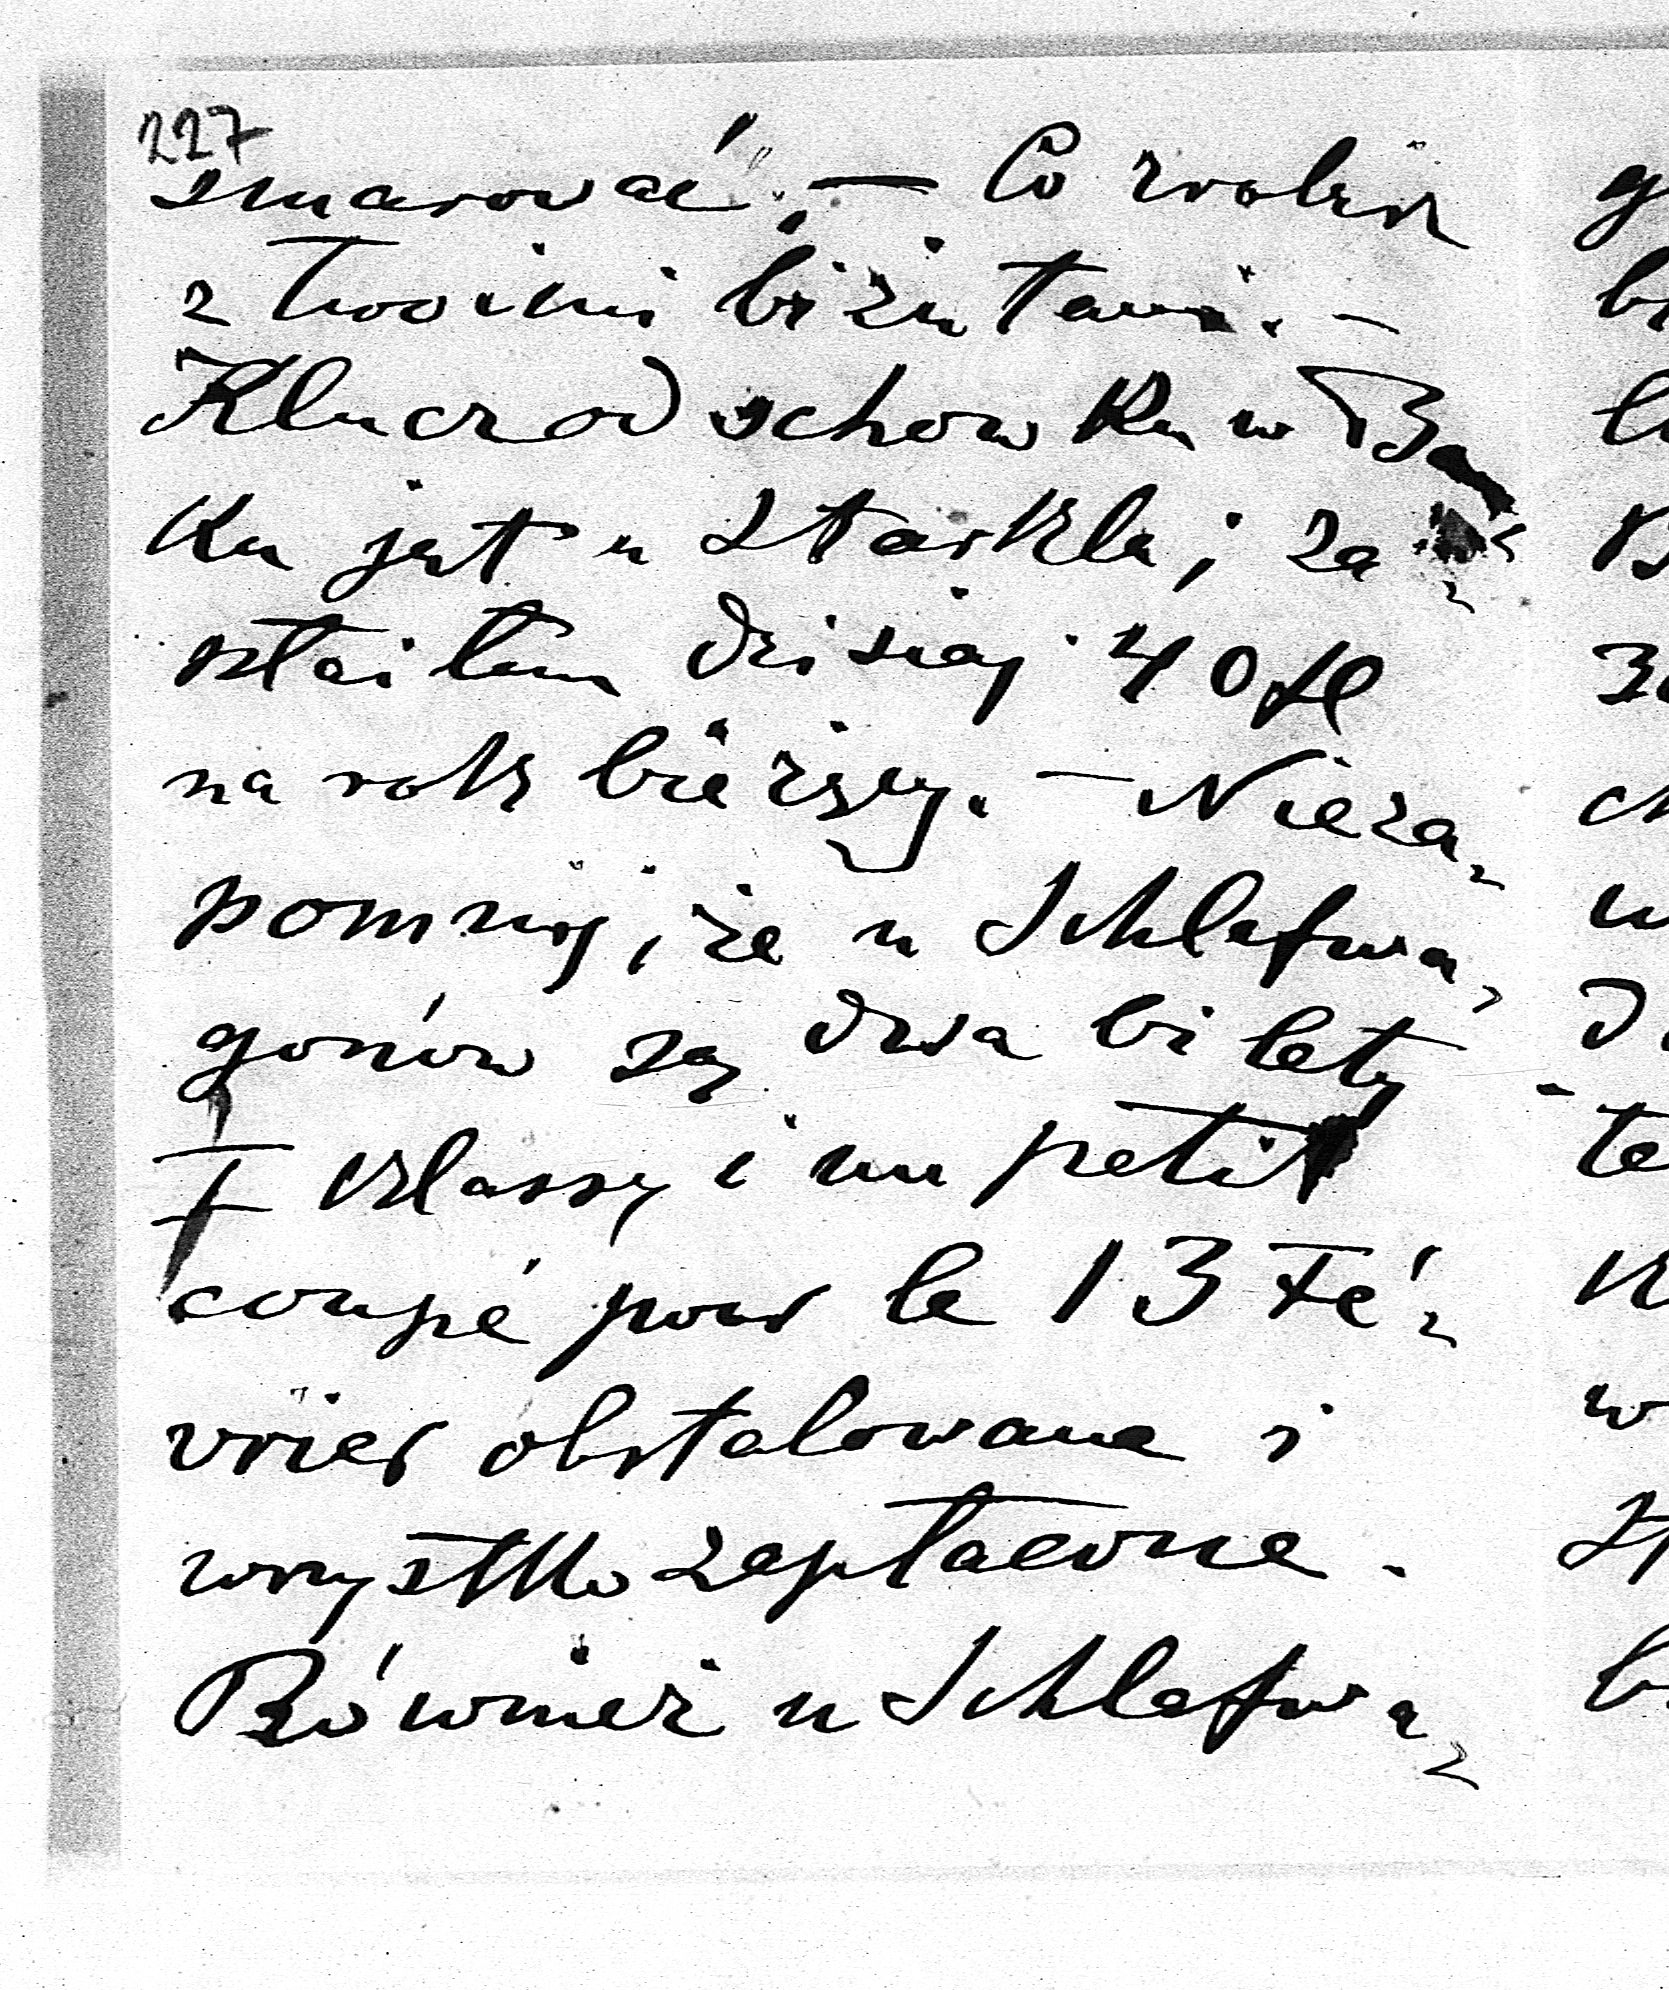 227
smarować. — Co zrobisz
z Twoimi biżutami. –
Klucz od schowku w Ban
ku jest u Starkla; za-
płaciłem dzisiaj 40 fl
na rok bieżący. — Nieza-
pomnij, że u Schlafwa-
gonów są dwa bilety
I klassy i un petit
coupé pour le 13 Fé-
vrier obstalowane i
wszystko zapłacone.
Również u Schlafwa-